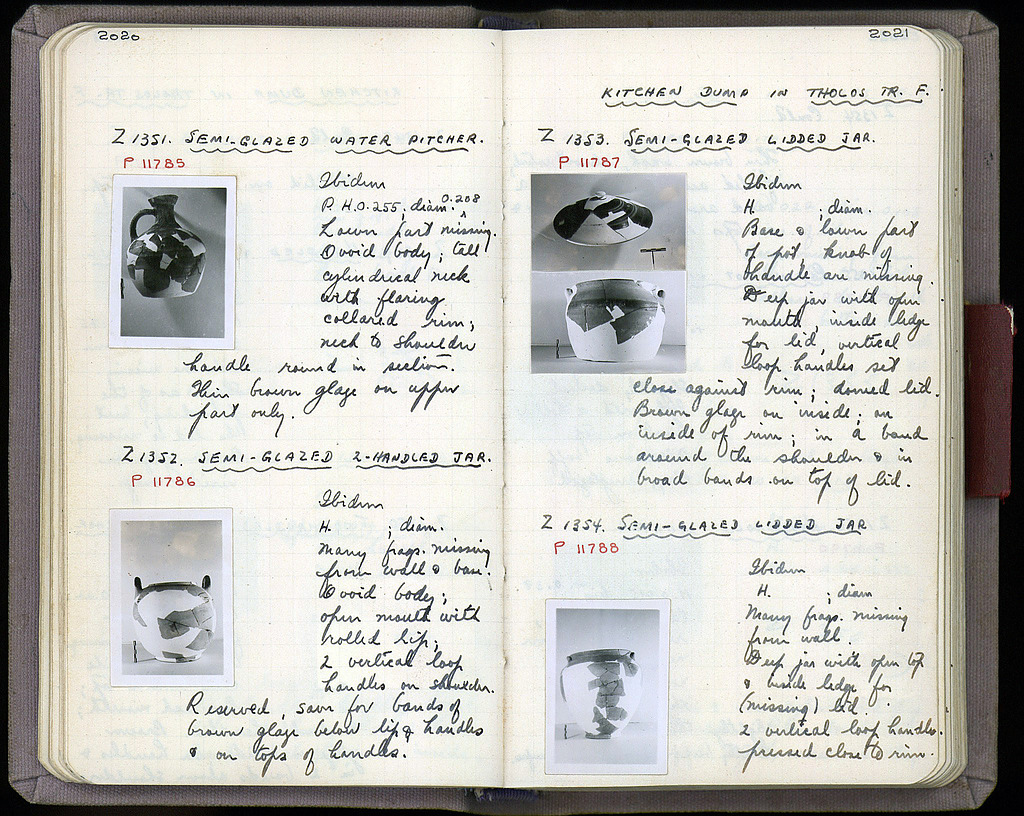 2020
Z 1351. SEMI-GLAZED WATER PITCHER.
P 11785
Ibidem
P.H. 0.255; diam. 0.208
Lower part missing.
Ovoid body; tall
cylindrical neck
with flaring
collared rim;
neck to shoulder
handle round in section.
Thin brown glaze on upper
part only.
Z 1352. SEMI-GLAZED 2-HANDLED JAR.
P 11786
Ibidem
H. ; diam.
Many frags. missing
from wall & base.
Ovoid body;
open mouth with
rolled lip;
2 vertical loop
handles on shoulder.
Reserved, save for bands of
brown glaze below lip & handles
& on tops of handles.
2021
KITCHEN DUMP IN THOLOS TR. F.
Z 1353. SEMI-GLAZED LIDDED JAR.
P 11787
Ibidem
H. ; diam.
Base & lower part
of pot, knob of
handle are missing.
Deep jar with open
mouth, inside ledge
for lid, vertical
loop handles set
close against rim; domed lid.
Brown glaze on inside; on
inside of rim; in a band
around the shoulder & in
broad bands on top of lid.
Z 1354. SEMI-GLAZED LIDDED JAR
P 11788
Ibidem
H. ; diam
Many frags. missing
from wall.
Deep jar with open top
& inside ledge for
(missing) lid.
2 vertical loop handles
pressed close to rim.